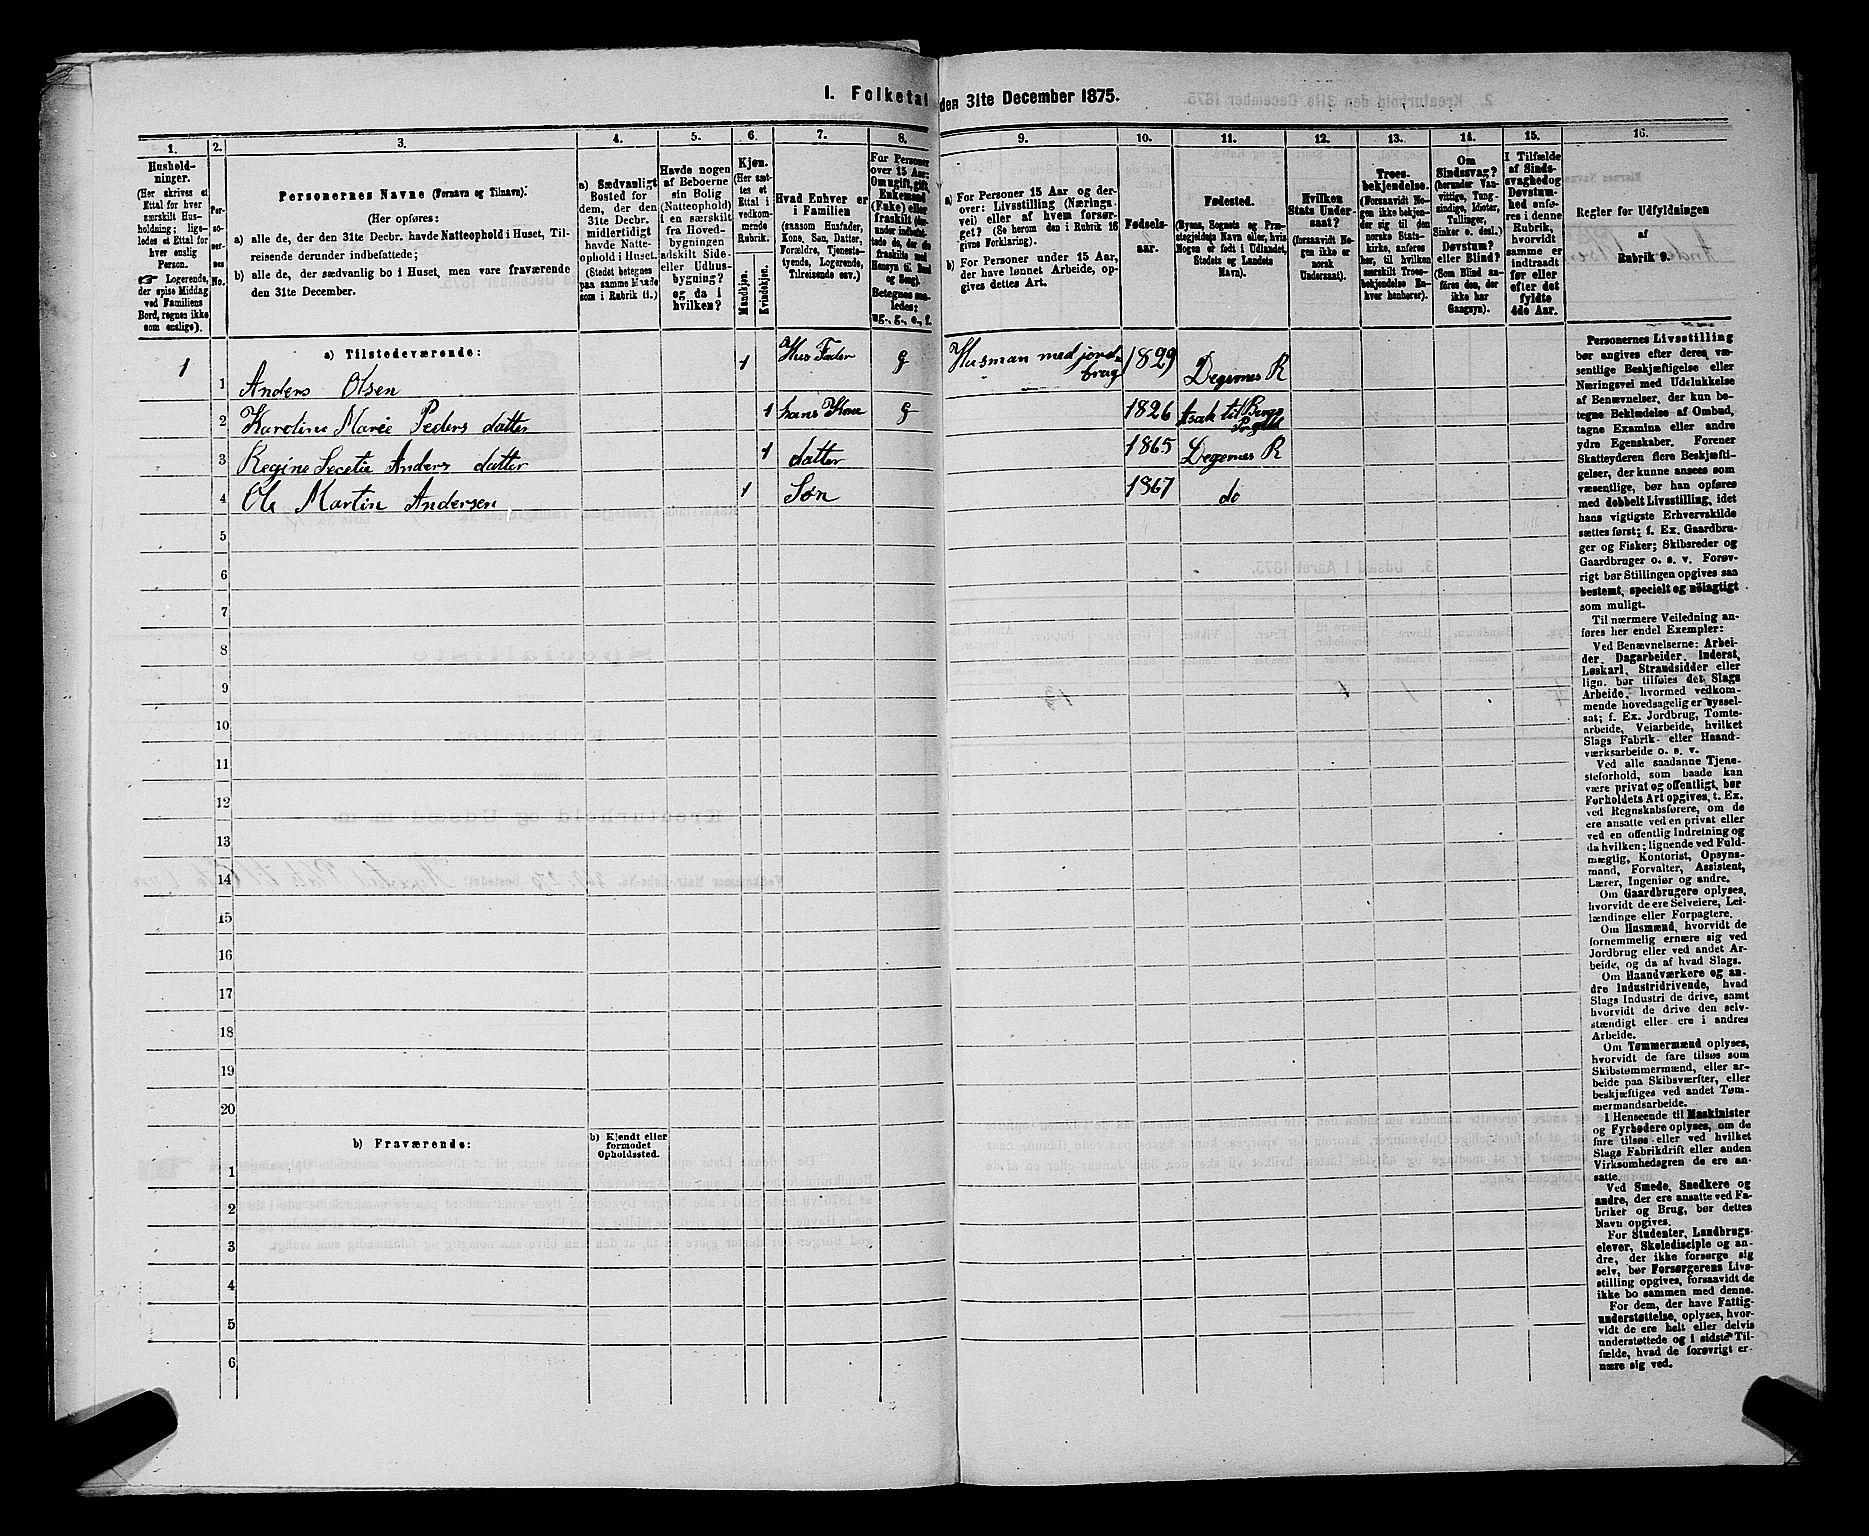 1. Folketal den 31te December 1875.
1.
Hushold-
ninger.
(Her skrives et
Ettal for hver
særskilt Hus-
holdning; lige-
ledes et Ettal for
hver enslig
Person.
☞ Logerende,
der spise Middag
ved Familiens
Bord, regnes ikke
som enslige).
2.
Per-
so-
ner-
nes
No.
3.
Personernes Navne (Fornavn og Tilnavn).
(Her opføres:
a) alle de, der den 31te Decbr. havde Natteophold i Huset, Til-
reisende derunder indbefattede;
b) alle de, der sædvanlig bo i Huset, men vare fraværende
den 31te December.
4.
a) Sædvanligt
Bosted for
dem, der den
31te Decbr.
midlertidigt
havde Natte-
ophold i Huset.
(Stedet betegnes
paa samme Maade
som i Rubrik 11.)
5.
Havde nogen
af Beboerne
sin Bolig
(Natteophold)
i en særskilt
fra Hoved-
bygningen
adskilt Side-
eller Udhus-
bygning?
og da i
hvilken?
6.
Kjøn.
(Her sæt-
tes et
Ettal i
vedkom-
mende
Rubrik.
Mandkjøn.
Kvindekjøn.
7.
Hvad Enhver er
i Familien
(saasom Husfader,
Kone, Søn, Datter,
Forældre, Tjeneste-
tyende, Logerende,
Tilreisende osv.)
8.
For Personer
over 15 Aar:
Om ugift, gift,
Enkemand
(Enke) eller
fraskilt
9.
a) For Personer 15 Aar og der-
over: Livsstilling (Nærings-
vei) eller af hvem forsør-
get? (Se herom den i Rubrik 16
givne Forklaring).
b) For Personer under 15 Aar,
der have lønnet Arbeide, op-
gives dettes Art.
10.
Fødsels-
aar.
11.
Fødested.
(Byens, Sognets og Præ-
stegjeldets Navn eller, hvis
Nogen er født i Udlandet,
Stedets og Landets
Navn).
12.
Hvilken
Stats Under-
saat?
(forsaavidt No-
gen ikke er
norsk
Undersaat).
13.
Troes-
bekjendelse.
(Forsaavidt No-
gen ikke bekjen-
der sig til den
norske Stats-
kirke, anføres
her, til hvilken
særskilt Troes-
bekjendelse En-
hver henhører).
14.
Om
Sindssvag?
(herunder Van-
vittige, Tung-
sindige, Idioter,
Tullinger,
Sinker o. desl.)
Døvstum?
eller Blind?
(Som Blind an-
føres den, der
ikke har
Gangsyn).
15.
I Tilfælde
af Sinds-
svaghed og
Døvstum-
hed anfø-
res i denne
Rubrik,
hvorvidt
samme er
indtraadt
før eller
efter det
fyldte
4de Aar.
16.
Regler for Udfyldningen
af
Rubrik 9.
a) Tilstedeværende:
1 1 Anders Olsen 1 Hus Fader g Husman med jord- brug 1829 Degernes R
2 Karoline Marie Peders datter 1 hans Kone g 1826 Asak til Bergs Prgjeld
3 Regine Anders datter 1 datter 1865 Degernes R
4 Ole Martin Andersen 1 Søn 1867 do
5
6
7
8
9
10
11
12
13
14
15
16
17
18
19
20
b) Fraværende:
b) Kjendt eller
formodet
Opholdssted.
1
2
3
4
5
6
Personernes Livsstilling
bør angives efter deres væ-
sentlige Beskjæftigelse eller
Næringsvei med Udelukkelse
af Benævnelser, der kun be-
tegne Beklædelse af Ombud,
tagne Examina eller andre
ydre Egenskaber. Forener
Skatteyderen flere Beskjæfti-
gelser, der kunne ansees som
væsentlige, bør han opføres
med dobbelt Livsstilling, idet
hans vigtigste Erhvervskilde
sættes først; f. Ex. Gaardbru-
ger og Fisker; Skibsreder og
Gaardbruger o. s. v. Forøv-
rigt bør Stillingen opgives saa
bestemt, specielt og nöiagtigt
som muligt.
Til nærmere Veiledning an-
føres her endel Exempler:
Ved Benævnelserne: Arbei-
der, Dagarbeider, Inderst,
Løskarl, Strandsidder eller
lign. bør tilføies det Slags
Arbeide, hvormed vedkom-
mende hovedsagelig er syssel-
sat; f. Ex. Jordbrug, Tomte-
arbeide, Veiarbeide, hvilket
Slags Fabrik- eller Haand-
værksarbeide o. s. v.
Ved alle saadanne Tjene-
steforhold, som baade kan
være privat og offentligt, bør
Forholdets Art opgives, t. Ex.
ved Regnskabsførere, om de
ere ansatte ved en privat eller
ved en offentlig Indretning og
da hvilken; lignende ved Fuld-
mægtig, Kontorist, Opsyns-
mand, Forvalter, Assistent,
Lærer, Ingeniør og andre.
Om Gaardbrugere oplyses,
hvorvidt de ere Selveiere, Lei-
lændinge eller Forpagtere.
Om Husmænd, hvorvidt de
fornemmelig ernære sig ved
Jordbrug eller ved andet Ar-
beide, og da af hvad Slags.
Om Haandværkere og an-
dre Industridrivende, hvad
Slags Industri de drive, samt
hvorvidt de drive den selv-
stændigt eller ere i andres
Arbeide.
Om Tømmermænd oplyses,
hvorvidt de fare tilsøs som
Skibstømmermænd, eller ar-
beide paa Skibsværfter, eller
beskjæftiges ved andet Tøm-
mermandsarbeide.
I Henseende til Maskinister
og Fyrbødere oplyses, om de
fare tilsøs eller ved hvilket
Slags Fabrikdrift eller anden
Virksomhedsgren de ere an-
satte.
Ved Smede, Snedkere og
andre, der ere ansatte ved Fa-
briker og Brug, bør dettes
Navn opgives.
For Studenter, Landbrugs-
elever, Skoledisciple og an-
dre, der ikke forsørge sig
selv, bør Forsørgerens Livs-
stilling opgives, forsaavidt de
ikke bo sammen med denne.
For dem, der have Fattig-
understøttelse, oplyses, hvor-
vidt de ere helt eller delvis
understøttede og i sidste Til-
fælde, hvad de forøvrigt er-
nære sig ved.